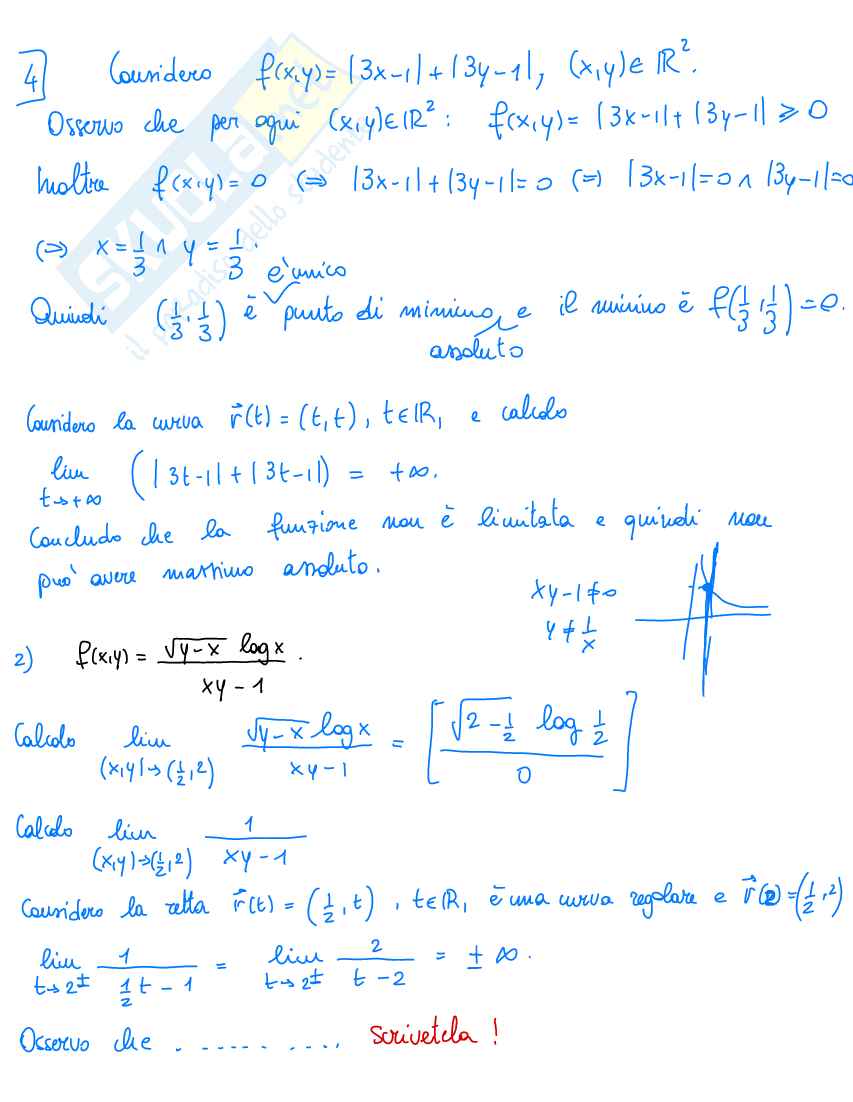 4 Considero f(x,y) = |3x-1| + |3y-1|, (x,y) ∈ ℝ².
Osservo che per ogni (x,y) ∈ ℝ² : f(x,y) = |3x-1| + |3y-1| ⩾ 0
Inoltre f(x,y) = 0 (⇒) |3x-1| + |3y-1| = 0 (=) |3x-1| = 0 ∧ |3y-1| = 0
(⇒) x = 1/3 ∧ y = 1/3.
è unico
Quindi (1/3, 1/3) è punto di minimo e il minimo è f(1/3, 1/3) = 0.
assoluto
Considero la curva r⃗(t) = (t,t), t ∈ ℝ, e calcolo
lim t→+∞ (|3t-1| + |3t-1|) = +∞.
Concludo che la funzione non è limitata e quindi non
può avere massimo assoluto.
xy-1 ≠ 0
y ≠ 1/x
2) f(x,y) = √(y-x) log x / (xy-1).
Calcolo lim (x,y)→(1/2,2) √(y-x) log x / (xy-1) = [√(2-1/2) log 1/2 / 0]
Calcolo lim (x,y)→(1/2,2) 1/(xy-1)
Considero la retta r⃗(t) = (1/2, t), t ∈ ℝ, è una curva regolare e r⃗(2) = (1/2, 2)
lim t→2± 1/(1/2 t - 1) = lim t→2± 2/(t-2) = ± ∞.
Osservo che .......... Scrivetela !
skuola.net
il paradiso dello studente